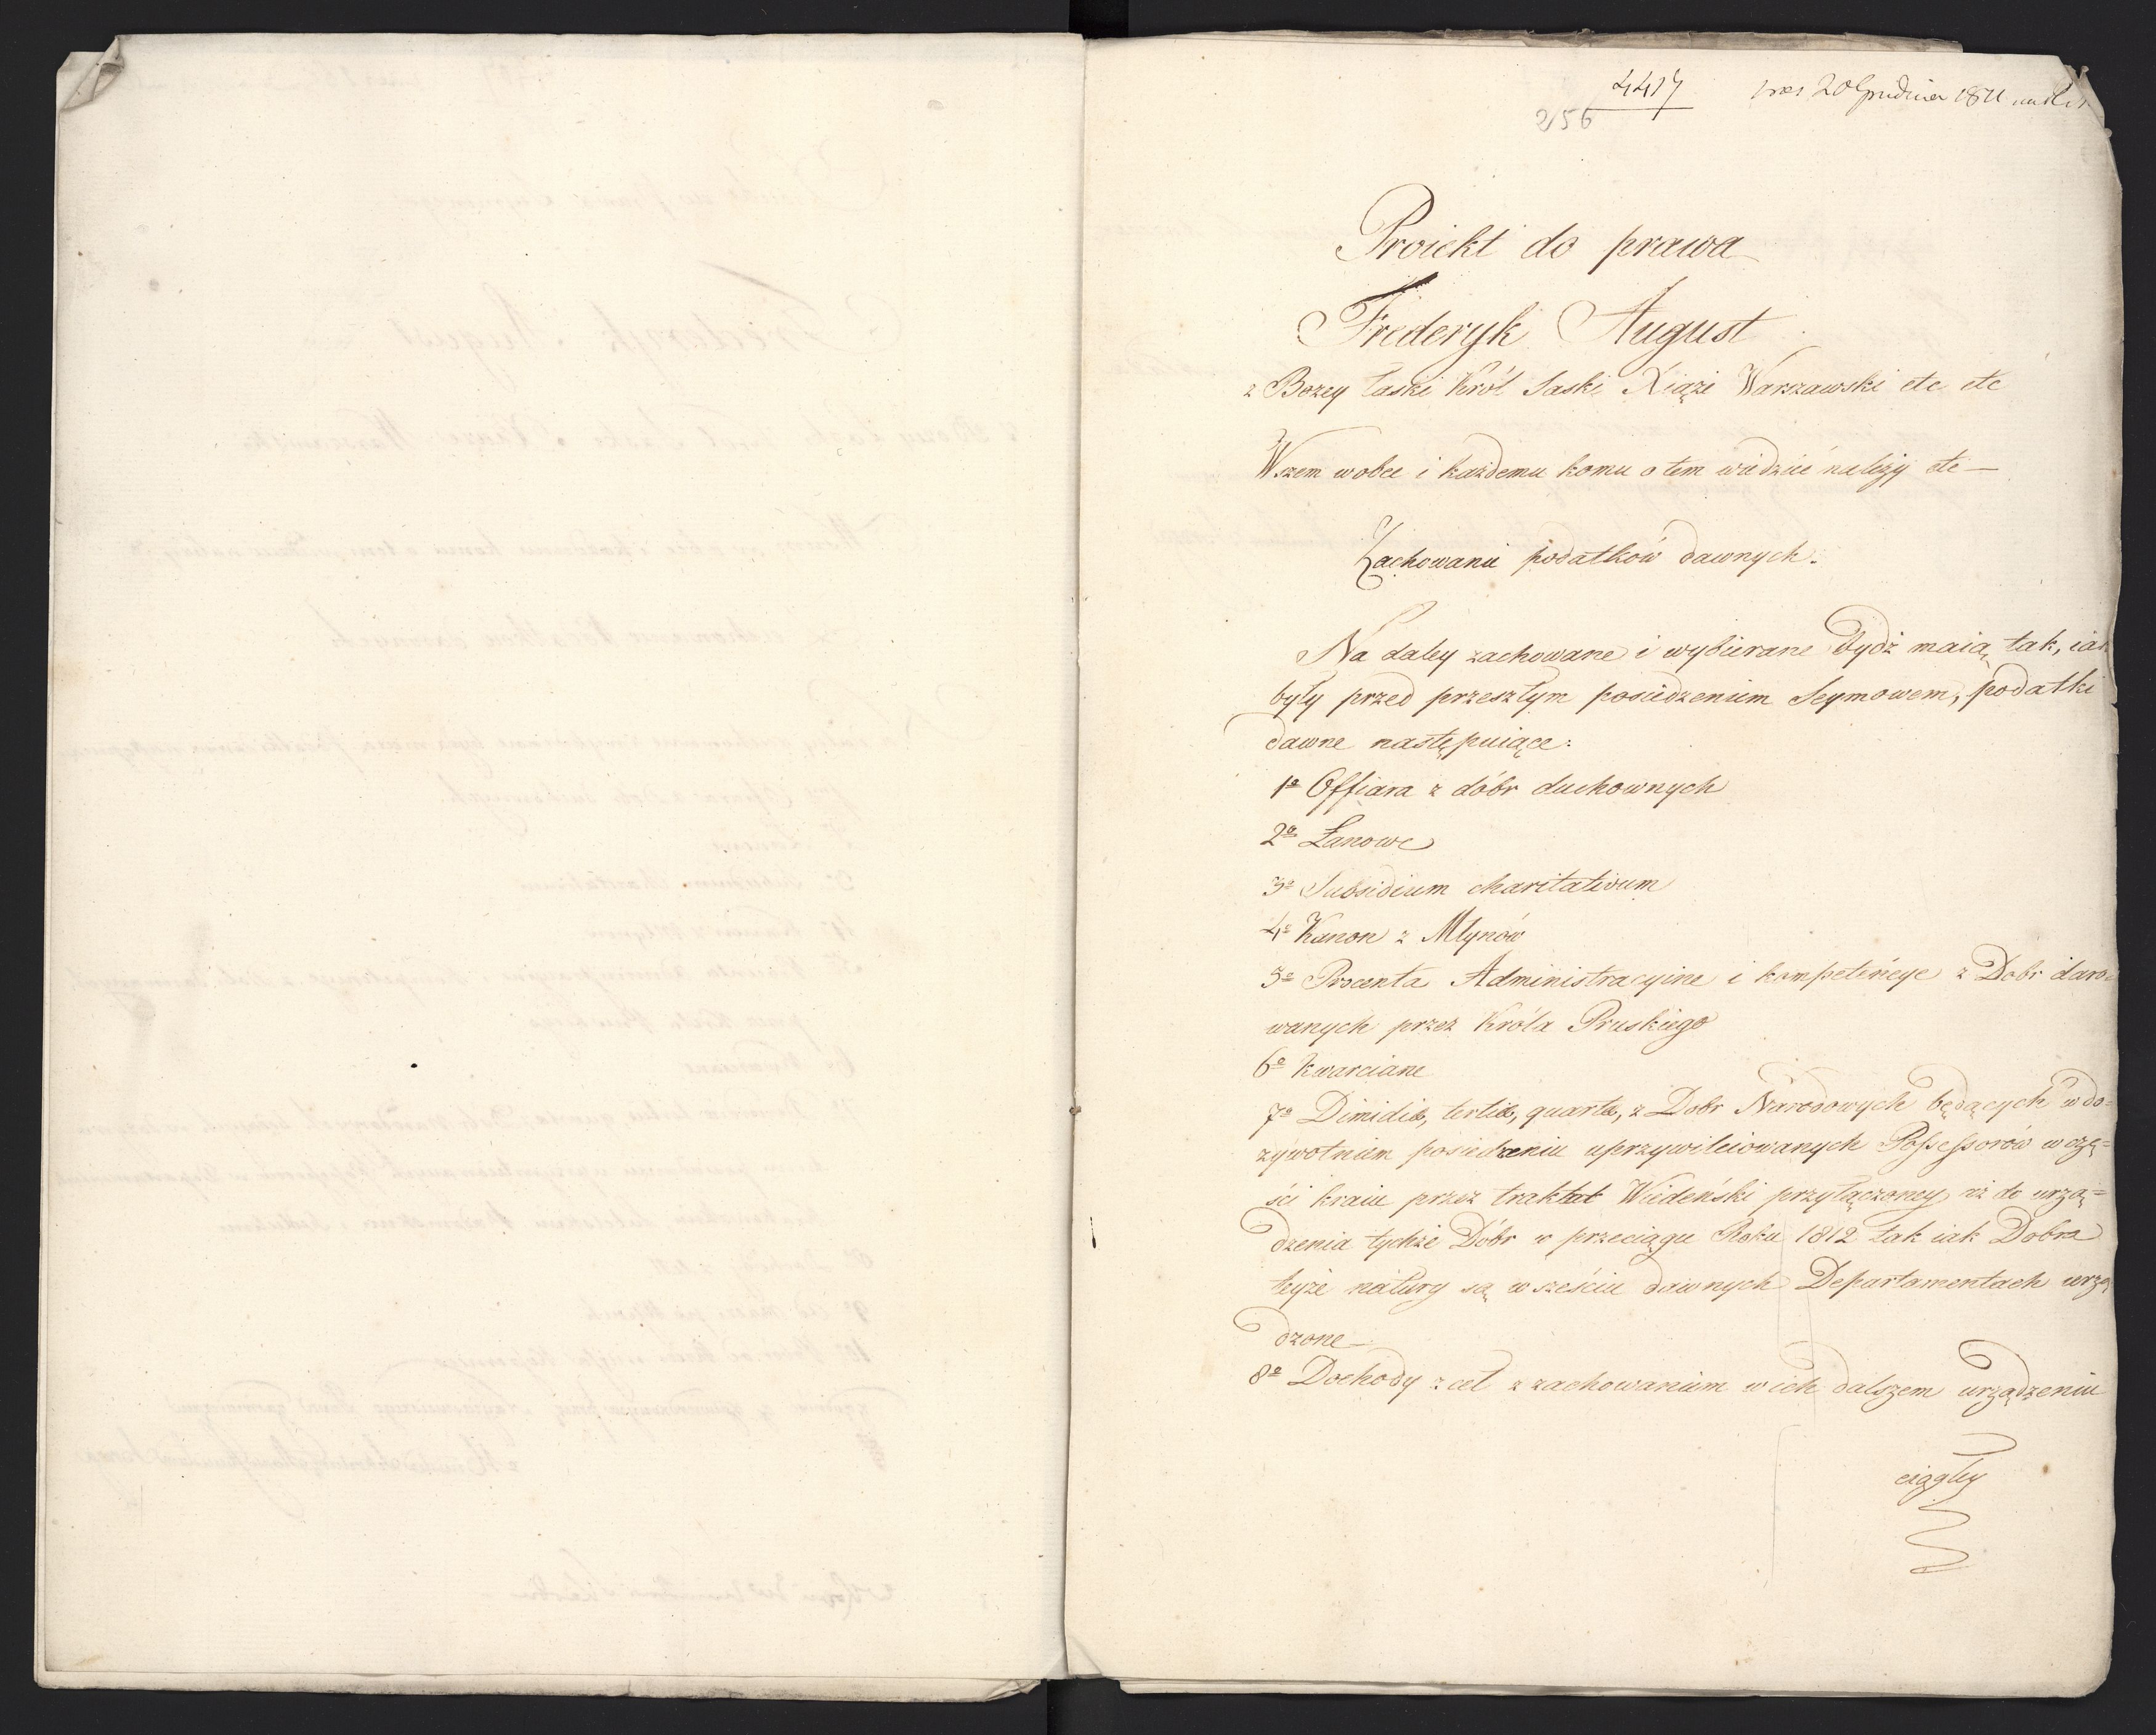 4417
256
20 Grudnia 1811
Proiekt do prawa
Frederyk August
z Bozey łaski Król Saski Xiąże Warszawski etc etc
Wszem wobec i każdemu komu o tem wiedzieć należy etc —
Zachowanie podatków dawnych.
Na daley zachowane i wybierane bydź maią tak, iak
były przed przeszłym posiedzeniem Seymowem, podatki
dawne następuiące:
1º Offiara z dóbr duchownych
2º Łanowe
3º Subsidium charitativum
4º Kanon z Młynów
5º Procenta Administracyine i kompetencye z Dobr daro
wanych przez Króla Pruskiego
6º Kwarciane
7º Dimidia, tertia, quarta, z Dobr Narodowych będących w do=
żywotniem posiedzeniu uprzywileiowanych Possessorów w czę=
ści kraiu przez traktat Wiedeński przyłączoney aż do urzą=
dzenia tychże Dóbr w przeciągu Roku 1812 tak iak Dobra
teyże natury są w sześciu dawnych Departamentach urzą
dzone —
8º Dochody z ceł z zachowaniem w ich dalszem urządzeniu
ciągłey